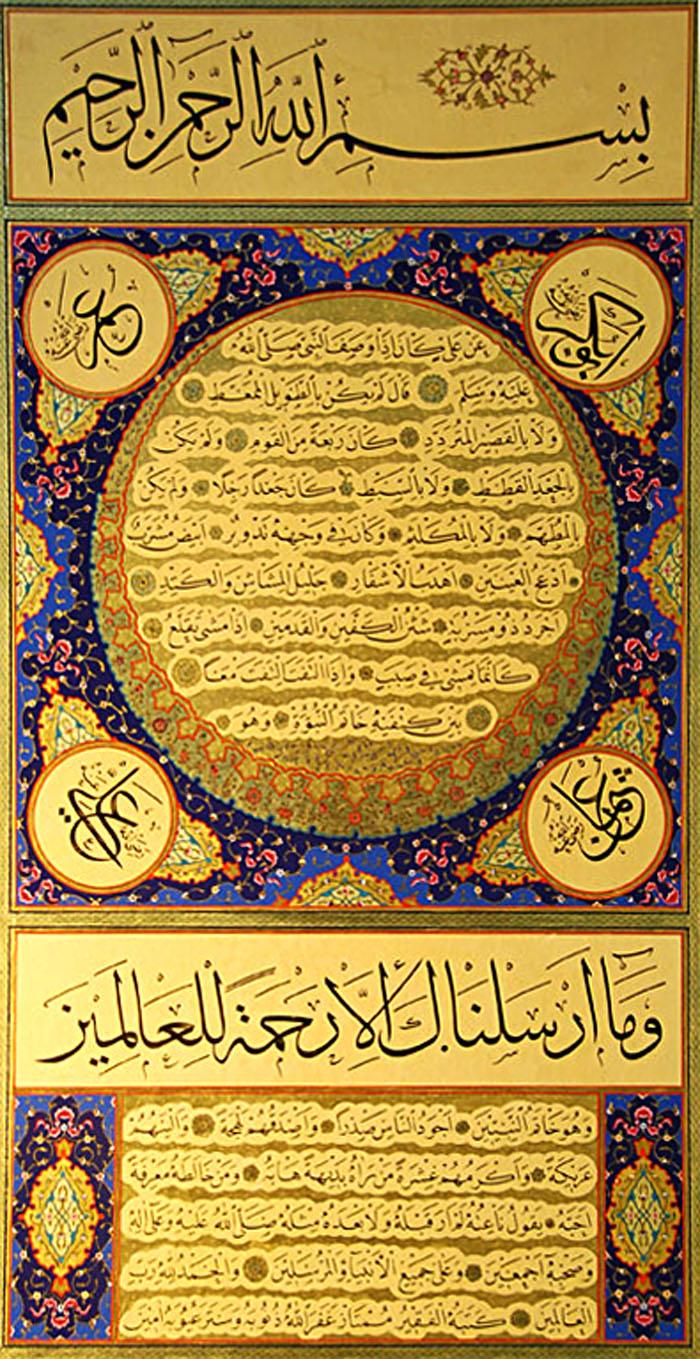 بِسْمِ اللّٰهِ الرَّحْمٰنِ الرَّحِيمِ
ابى بكر
عمر
عن على كان اذا وصف النبى صلى الله
عليه وسلم قال لم يكن بالطويل الممغط
ولا بالقصير المتردد كان ربعة من القوم ولم يكن
بالجعد القطط ولا بالسبط كان جعدا رجلا ولم يكن
بالمطهم ولا بالمكلثم وكان فى وجهه تدوير ابيض مشرب
ادعج العينين اهدب الاشفار جليل المشاش والكتد
اجرد ذو مسربة شثن الكفين والقدمين اذا مشى تقلع
كانما يمشى فى صبب واذا التفت التفت معا
بين كتفيه خاتم النبوة وهو
عثمان
على
وَمَا اَرْسَلْنَاكَ اِلَّا رَحْمَةً لِلْعَالَمِينَ
وهو خاتم النبيين اجود الناس صدرا واصدقهم لهجة والينهم
عريكة واكرمهم عشرة من رآه بديهة هابه ومن خالطه معرفة
احبه يقول ناعته لم ار قبله ولا بعده مثله صلى الله عليه وعلى اله
وصحبه اجمعين وعلى جميع الانبياء والمرسلين والحمد لله رب
العالمين كتبه الفقير ممتاز غفر الله ذنوبه وستر عيوبه امين